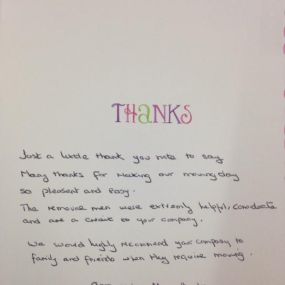 THANKS
Just a little thank you note to say
Many thanks for making our moving day
so pleasant and easy.
The removal men were extremely helpful, considerate
and are a credit to your company.
We would highly recommend your company to
family and friends when they require moving.